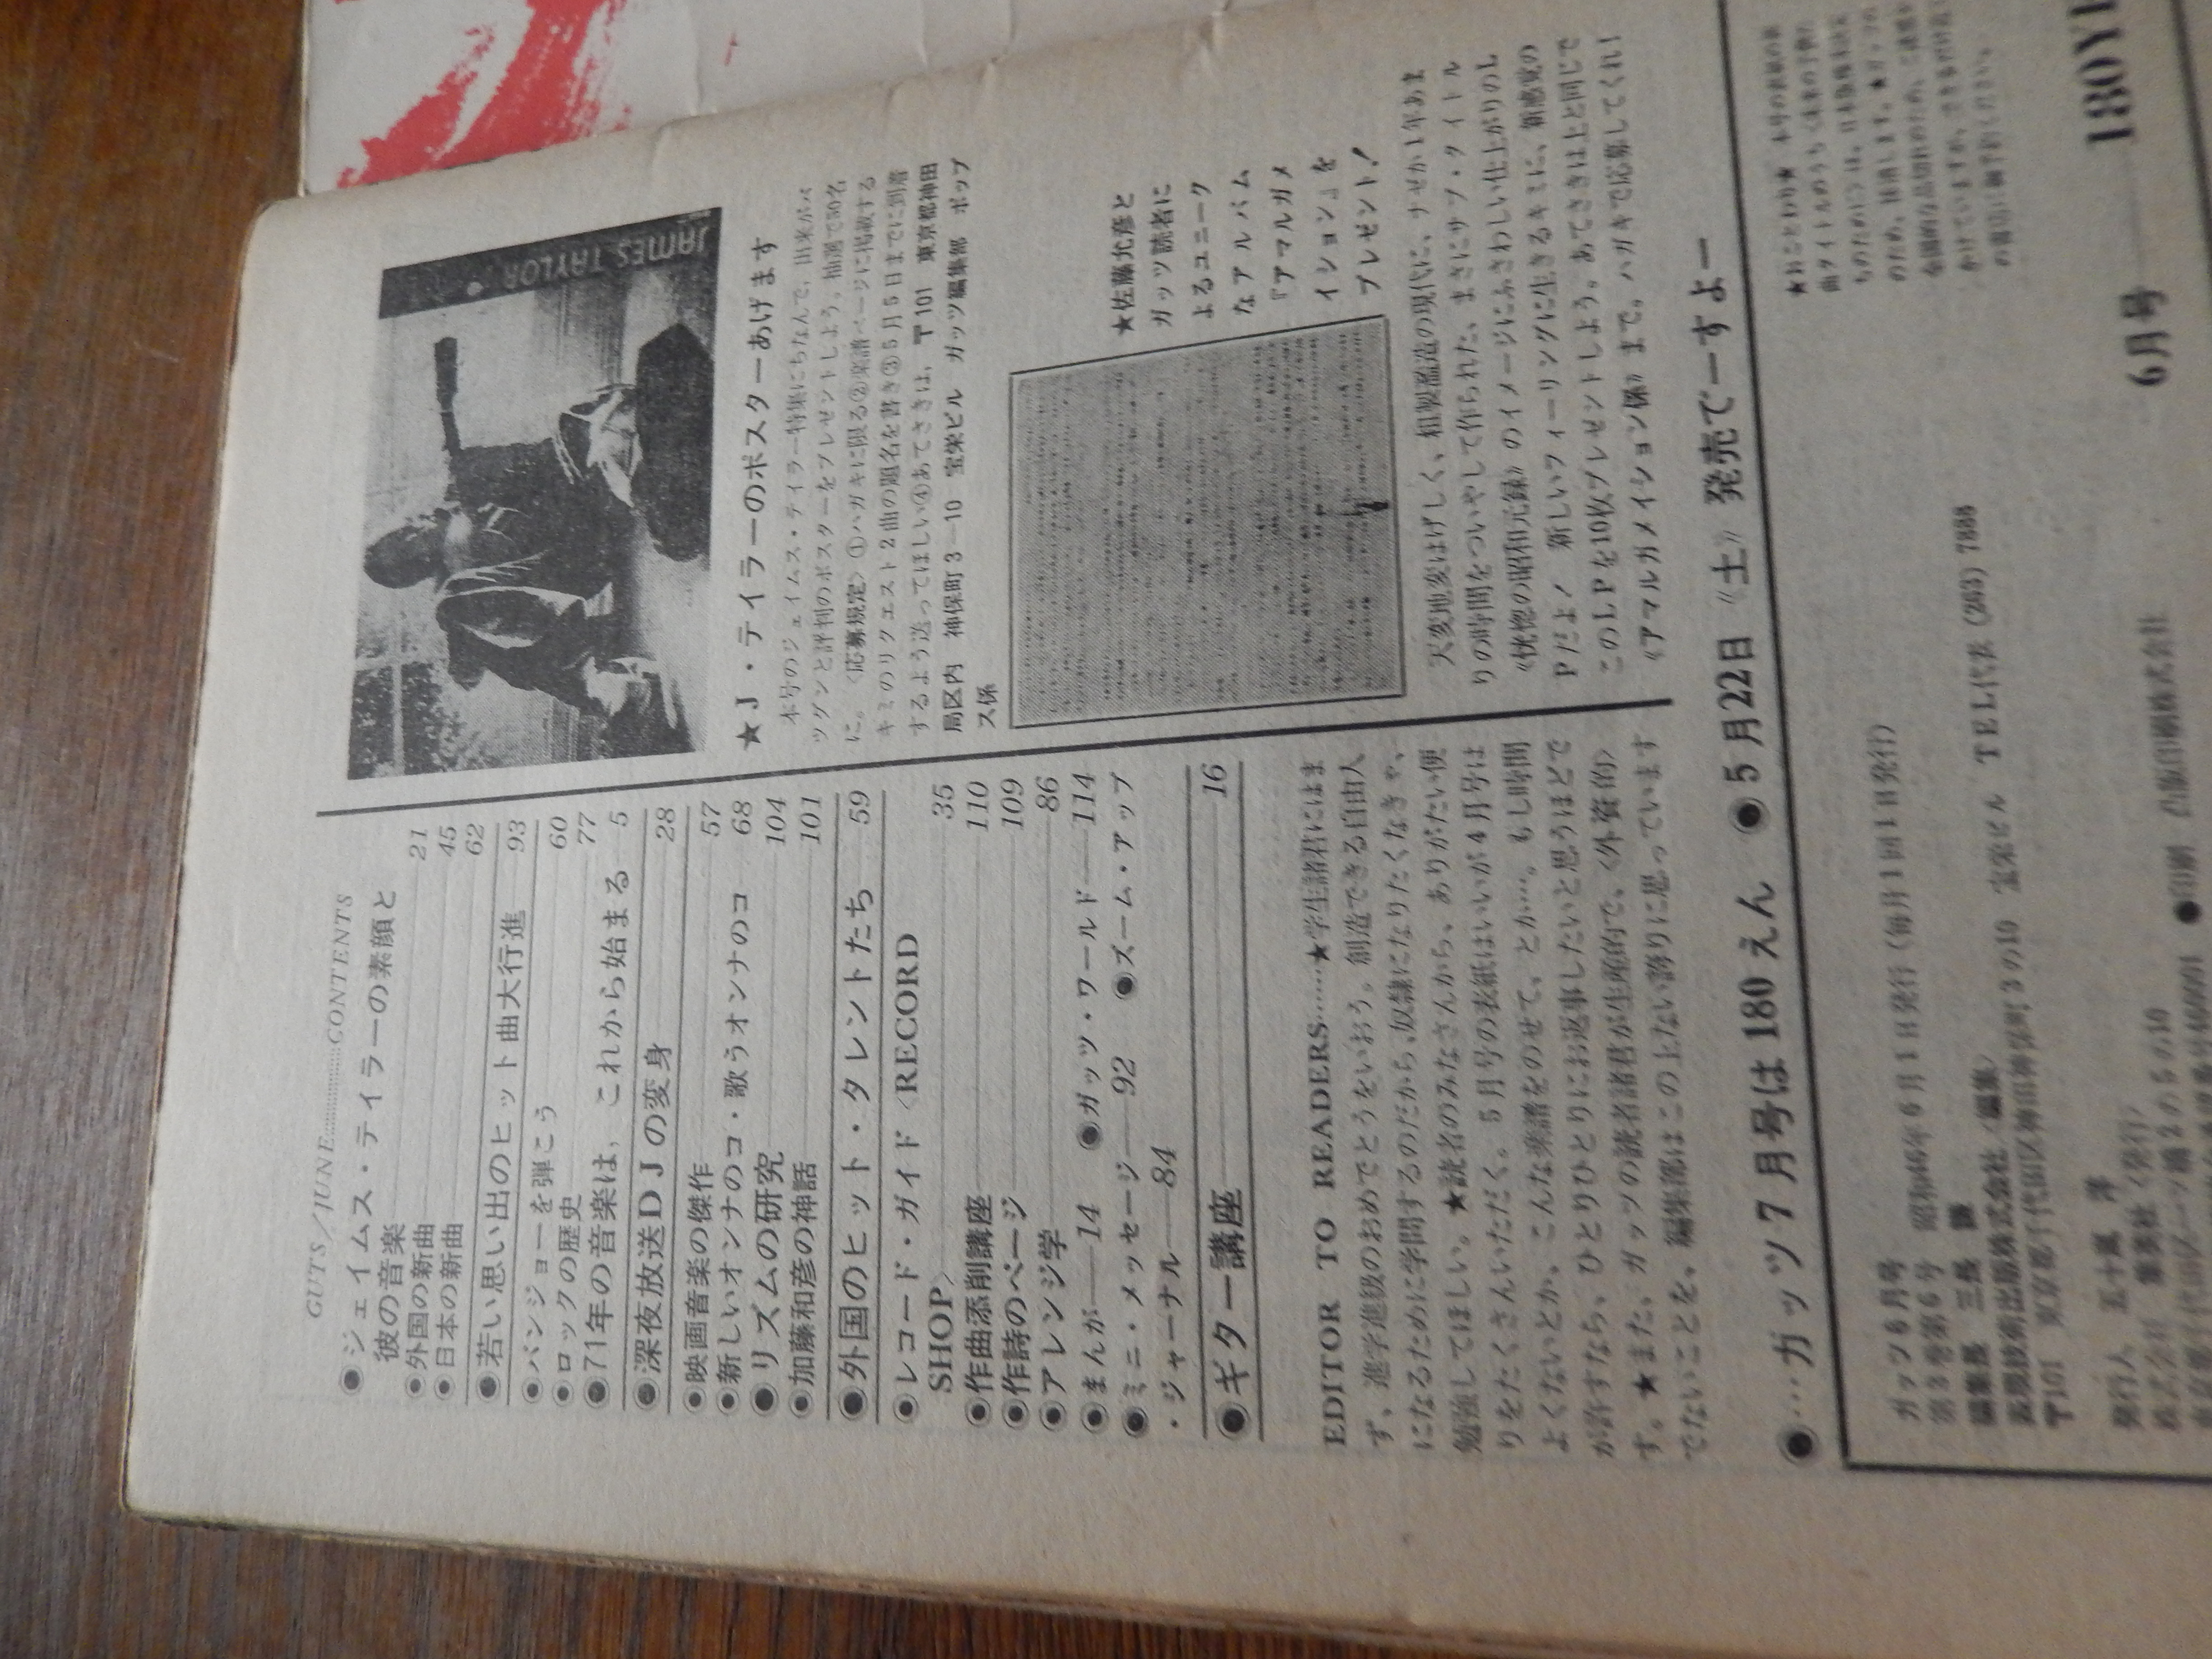 GUTS／JUNE…………CONTENTS
●ジェイムス・テイラーの素顔と
彼の音楽 21
●外国の新曲 45
●日本の新曲 62
●若い思い出のヒット曲大行進 93
●バンジョーを弾こう 60
●ロックの歴史 77
●71年の音楽は，これから始まる 5
●深夜放送DJの変身 28
●映画音楽の傑作 57
●新しいオンナのコ・歌うオンナのコ 68
●リズムの研究 104
●加藤和彦の神話 101
●外国のヒット・タレントたち 59
●レコード・ガイド〈RECORD
SHOP〉 35
●作曲添削講座 110
●作詩のページ 109
●アレンジ学 86
●まんが――14 ●ガッツ・ワールド――114
●ミニ・メッセージ――92 ●ズーム・アップ
・ジャーナル――84
●ギター講座 16
EDITOR TO READERS……★学生諸君にはま
ず、進学進級のおめでとうをいおう。創造できる自由人
になるために学問するのだから、奴隷になりたくなきゃ、
勉強してほしい。★読者のみなさんから、ありがたい便
りをたくさんいただく。5月号の表紙はいいが4月号は
よくないとか、こんな楽譜をのせて、とか…。もし時間
が許すなら、ひとりひとりにお返事したいと思うほどで
す。★また、ガッツの読者諸君が生産的で、〈外資的〉
でないことを、編集部はこの上ない誇りに思っています
JAMES TAYLOR
★J・テイラーのポスターあげます
本号のジェイムス・テイラー特集にちなんで，出来がバ
ツグンと評判のポスターをプレゼントしよう。抽選で50名
に。〈応募規定〉①ハガキに限る②楽譜ページに掲載する
キミのリクエスト2曲の題名を書き③5月5日までに到着
するよう送ってほしい④あてさきは，〒101 東京都神田
局区内 神保町3―10 宝栄ビル ガッツ編集部 ポップ
ス係
★佐藤允彦と
ガッツ読者に
よるユニーク
なアルバム
『アマルガメ
イション』を
プレゼント！
天変地変はげしく、粗製濫造の現代に、ナゼか1年あま
りの時間をついやして作られた、まさにサブ・タイトル
《恍惚の昭和元録》のイメージにふさわしい仕上がりのL
Pだよ！ 新しいフィーリングに生きるキミに、新感覚の
このLPを10枚プレゼントしよう。あてさきは上と同じで
《アマルガメイション係》まで。ハガキで応募してくれ！
●…ガッツ7月号は180えん ●5月22日《土》発売でーすよー
ガッツ6月号 昭和46年6月1日発行（毎月1回1日発行）
第3巻第6号
編集長 三長
音楽技術出版株式会社〈編集〉
〒101 東京都千代田区神田神保町3の10 宝栄ビル TEL代表（263）7888
発行人 五十嵐 洋
株式会社 集英社〈発行〉
●印刷 凸版印刷株式会社
★おことわり★
6月号